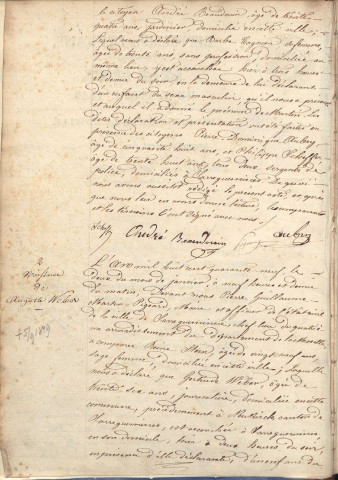 le citoyen André Beaudouin, âgé de trente
quatre ans, jardinier, domicilié en cette ville,
lequel nous a déclaré que Barbe
âgée de trente ans, sans profession, domiciliée au
même lieu, est accouchée hier à trois heures
et demie du soir, en la demeure du déclarant
d'un enfant du sexe masculin, qu'il nous a présenté
et auquel il a donné le prénom de Martin. Les
dites déclaration et présentation ont été faites en
présence des citoyens Pierre Dominique Aubry
âgé de cinquante huit ans, et Philippe
âgé de trente huit ans, tous deux sergents de
police, domiciliés à Sarreguemines. De quoi
nous avons aussitôt rédigé le présent acte, et après
que nous leur en avons donné lecture, le comparant
et les témoins l'ont signé avec nous.
André Beaudouin Aubry
2
Naissance
de
Auguste Weber
L'an mil huit cent quarante neuf, le
deux du mois de janvier, à neuf heures
du matin, devant nous Pierre Guillaume
Maire et officier de l'état civil
de la ville de Sarreguemines, chef lieu du quatrième
arrondissement du département de la Moselle
a comparu âgée de vingt neuf ans,
sage femme, domiciliée en cette ville, laquelle
nous a déclaré que Gertrude Weber, âgée de
trente six ans, journalière, domiciliée en cette
commune, précédemment à canton de
Sarreguemines, est accouchée à Sarreguemines
en son domicile, hier à deux heures du soir,
en présence d'elle déclarante, d'un enfant du